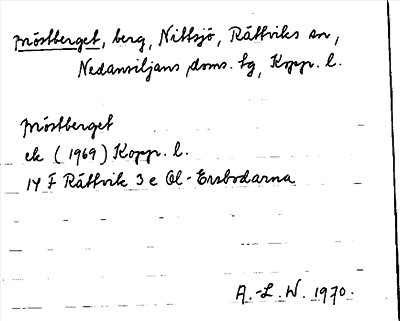 Pröstberget, berg, Nittsjö, Rättviks sn,
Nedansiljans doms. tg, Kopp. l.
Pröstberget
ek (1969) Kopp. l.
14 F Rättvik 3 e Ol-Ersbodarna
A.-L. W. 1970.